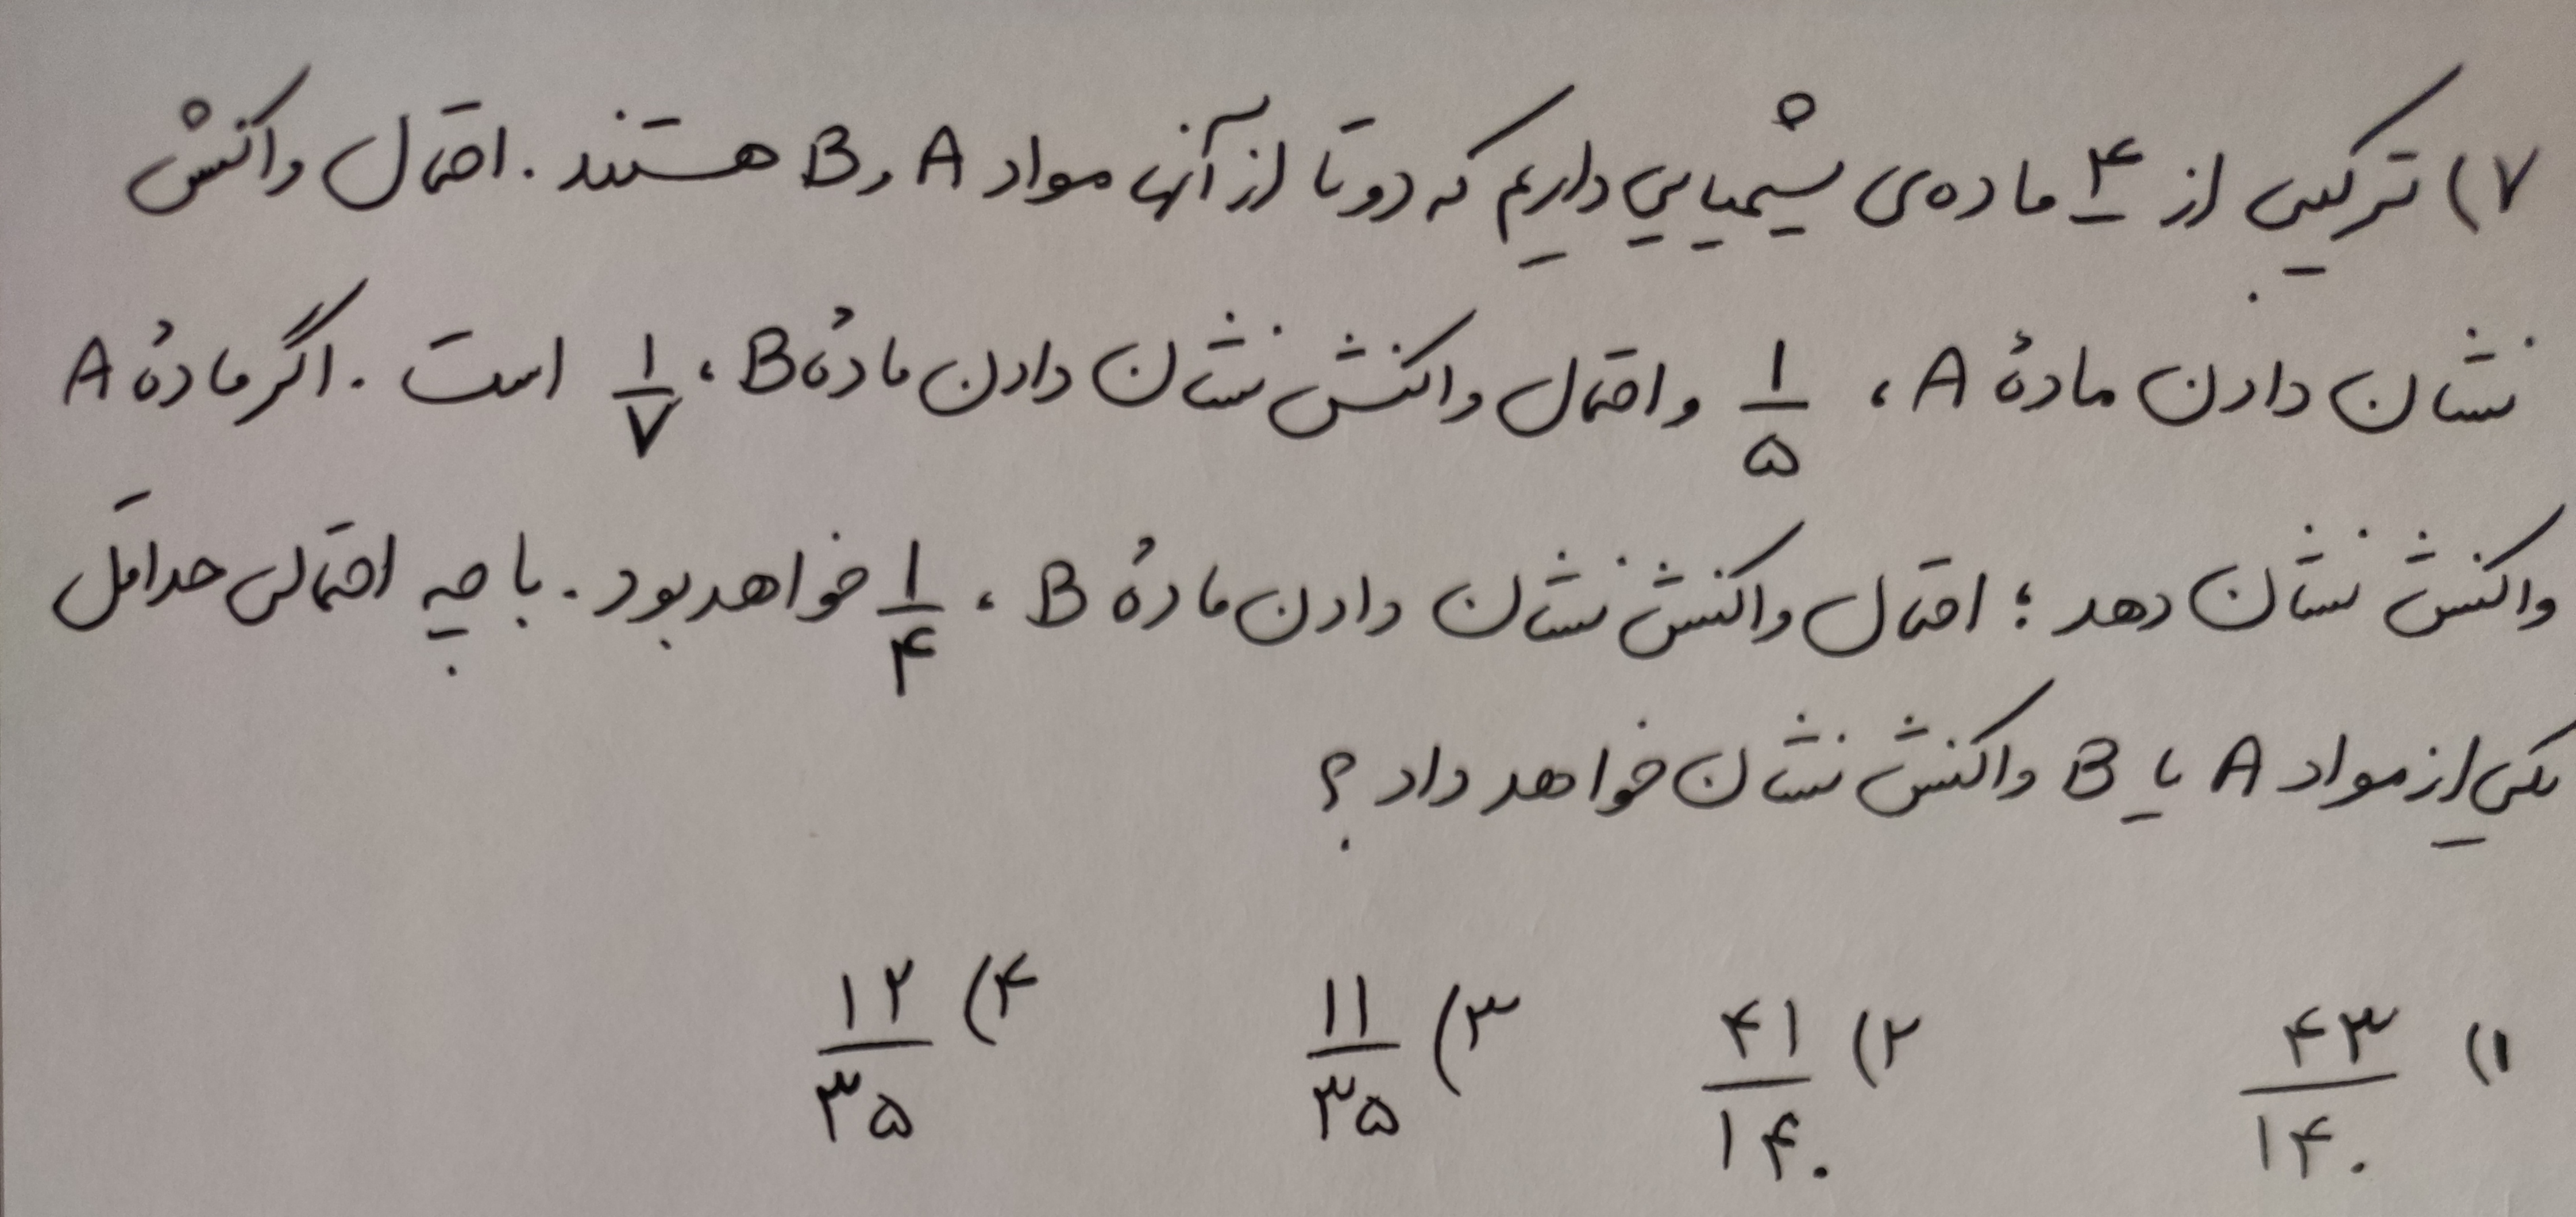 ۷) ترکیبی از ۴ ماده‌ی شیمیایی داریم که دوتا از آنها مواد A و B هستند. احتمال واکنش
نشان دادن مادهٔ A، ۱/۵ و احتمال واکنش نشان دادن مادهٔ B، ۱/۷ است. اگر مادهٔ A
واکنش نشان دهد؛ احتمال واکنش نشان دادن مادهٔ B، ۱/۴ خواهد بود. با چه احتمالی حداقل
یکی از مواد A یا B واکنش نشان خواهد داد؟
۱) ۴۳/۱۴۰ ۲) ۴۱/۱۴۰ ۳) ۱۱/۳۵ ۴) ۱۲/۳۵